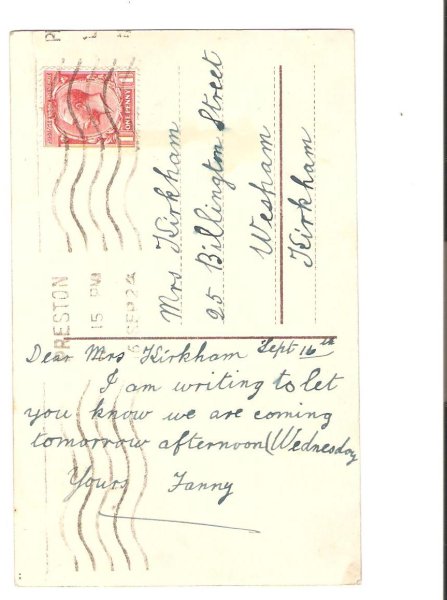 ONE PENNY
PRESTON
15 PM
SEP 24
Mrs Kirkham
25 Billington Street
Wesham
Kirkham
Dear Mrs Kirkham Sept 16th
I am writing to let
you know we are coming
tomorrow afternoon (Wednesday
Yours Fanny